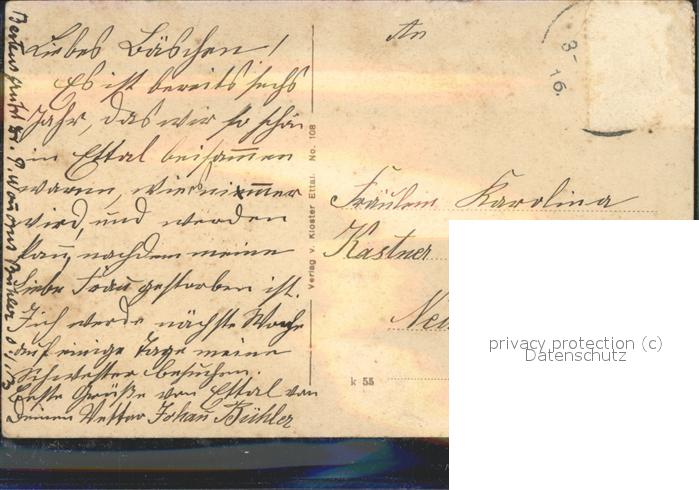 Liebes Bäschen!
Es ist bereits sechs
Jahr, das wir so schön
in Ettal beisammen
waren, wies nimmer
wird, und werden
kann, nachdem meine
liebe Frau gestorben ist.
Ich werde nächste Woche
auf einige Tage meine
Schwester besuchen.
Beste Grüße von Ettal von
Deinem Vetter Johann Bühler
Verlag v. Kloster Ettal. No. 108
k 55
An
Fräulein Karolina
Kastner
3
16.
privacy protection (c)
Datenschutz